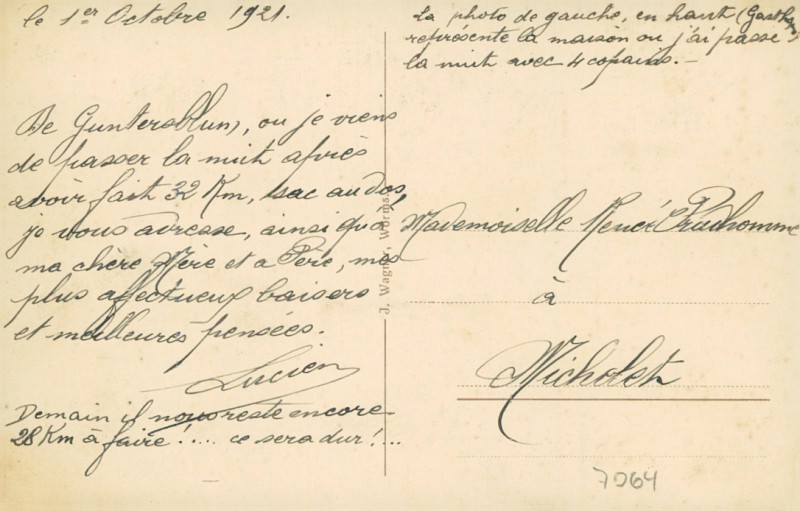 le 1er Octobre 1921.
La photo de gauche, en haut (Gasthaus)
représente la maison ou j'ai passé
la nuit avec 4 copains.-
De Guntersblum, ou je viens
de passer la nuit après
avoir fait 32 Km, sac au dos,
je vous adresse, ainsi qu'à
ma chère Mère et a Père, mes
plus affectueux baisers
et meilleures pensées.
Lucien
Demain il nous reste encore
28 Km à faire!.... ce sera dur!...
J. Wagner, Worms
Mademoiselle Renée Prudhomme
à
Micholet
7064